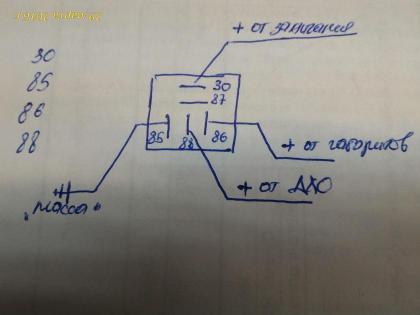 + от зажигания
30
85
86
88
30
87
85
88
86
+ от габаритов
+ от ДХО
"масса"